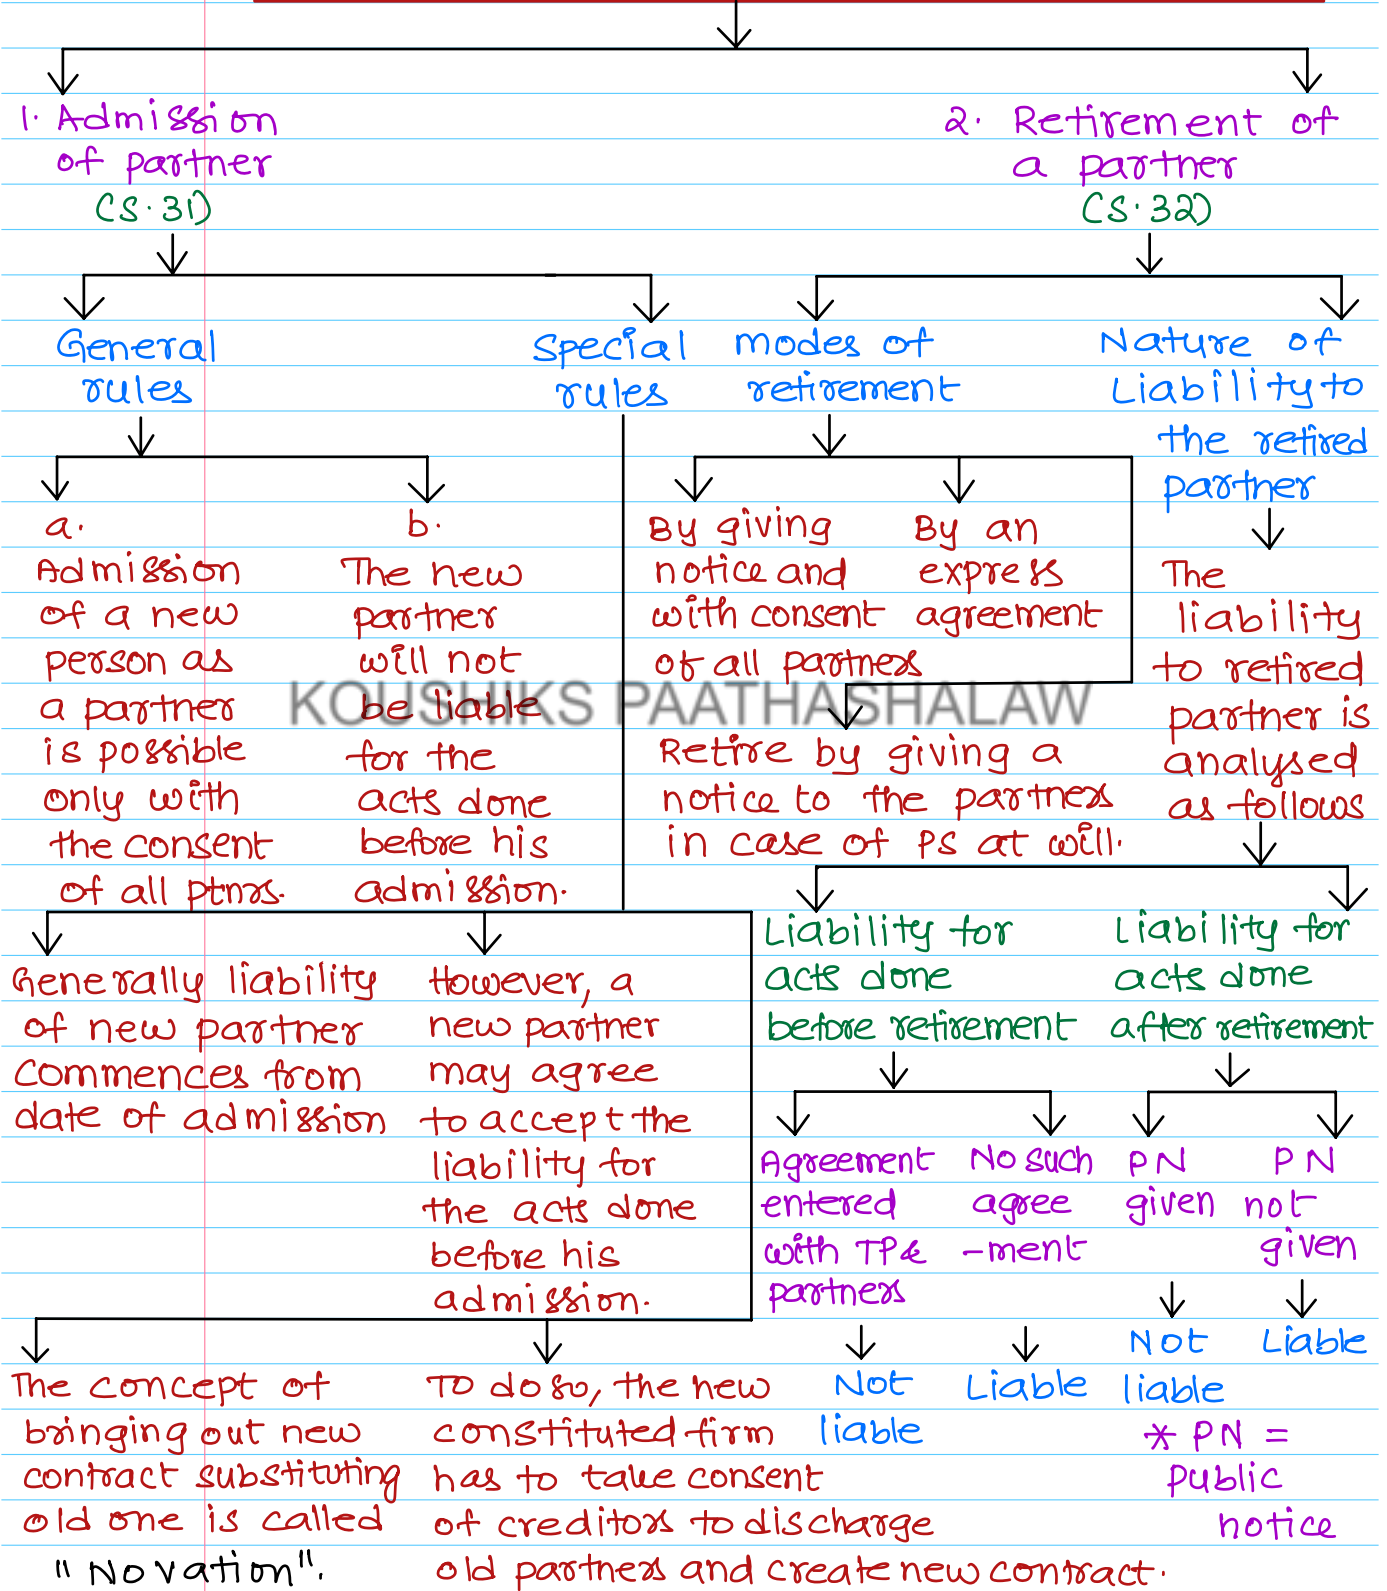 1. Admission
of partner
(S.31)
2. Retirement of
a partner
(S.32)
General
rules
Special
rules
modes of
retirement
Nature of
Liability to
the retired
partner
a.
Admission
of a new
person as
a partner
is possible
only with
the consent
of all ptnrs.
b.
The new
partner
will not
be liable
for the
acts done
before his
admission.
By giving
notice and
with consent
of all partners
By an
express
agreement
KOUSHIKS PAATHASHALAW
Retire by giving a
notice to the partners
in case of PS at will.
The
liability
to retired
partner is
analysed
as follows
Generally liability
of new partner
Commences from
date of admission
However, a
new partner
may agree
to accept the
liability for
the acts done
before his
admission.
Liability for
acts done
before retirement
Liability for
acts done
after retirement
Agreement
entered
with TP &
partners
No such
agree
-ment
PN
given
PN
not
given
Not
liable
Liable
Not
liable
Liable
* PN =
Public
notice
The concept of
bringing out new
contract substituting
old one is called
"Novation".
To do so, the new
constituted firm
has to take consent
of creditors to discharge
old partners and create new contract.